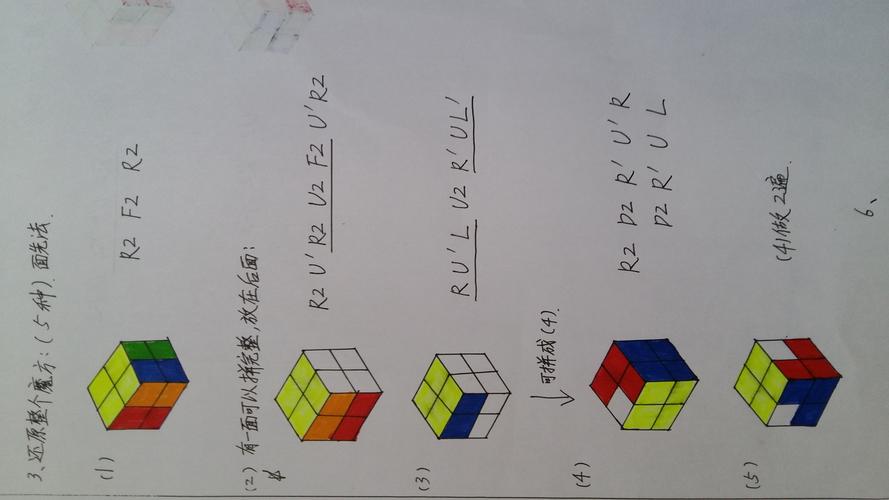 3、还原整个魔方:(5种)面先法.
(1)
R2 F2 R2
(2) 有一面可以拼完整,放在后面:
R2 U' R2 U2 F2 U' R2
(3)
R U' L U2 R' U L'
↓ 可拼成(4).
(4)
R2 D2 R' U' R
D2 R' U L
(5)
(4)做2遍.
6、